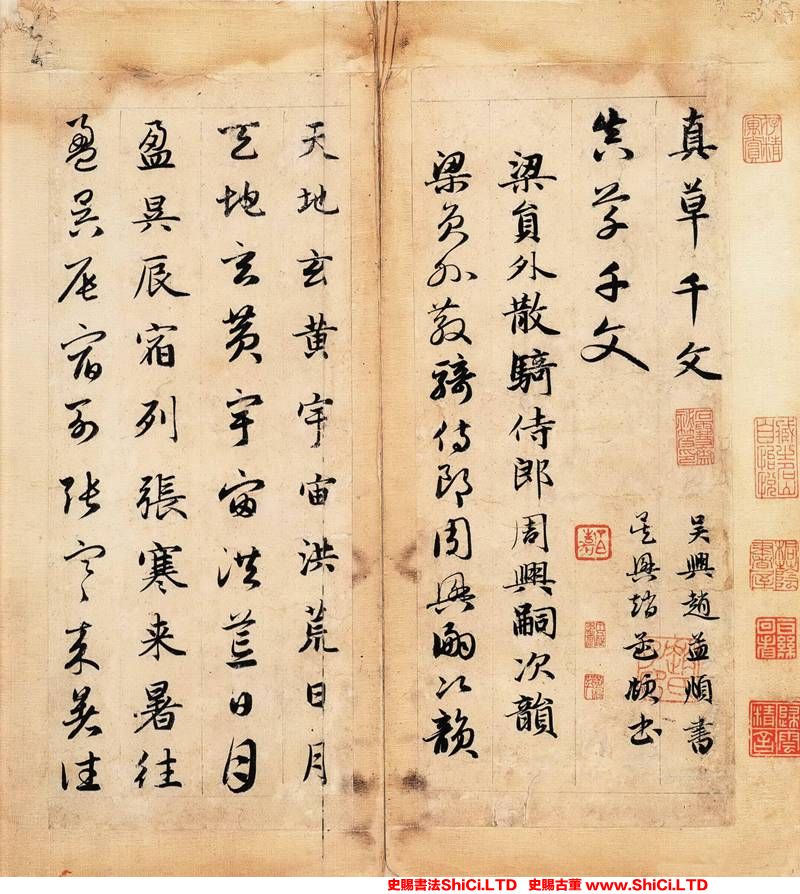 真草千文
吴興趙孟頫書
真草千文
吴興趙孟頫書
梁員外散騎侍郎周興嗣次韻
梁員外散騎侍郎周興嗣次韻
天地玄黄宇宙洪荒日月
天地玄黄宇宙洪荒日月
盈昃辰宿列張寒来暑往
盈昃辰宿列張寒来暑往
史賜書法ShiCi.LTD 史賜古董 www.ShiCi.LTD